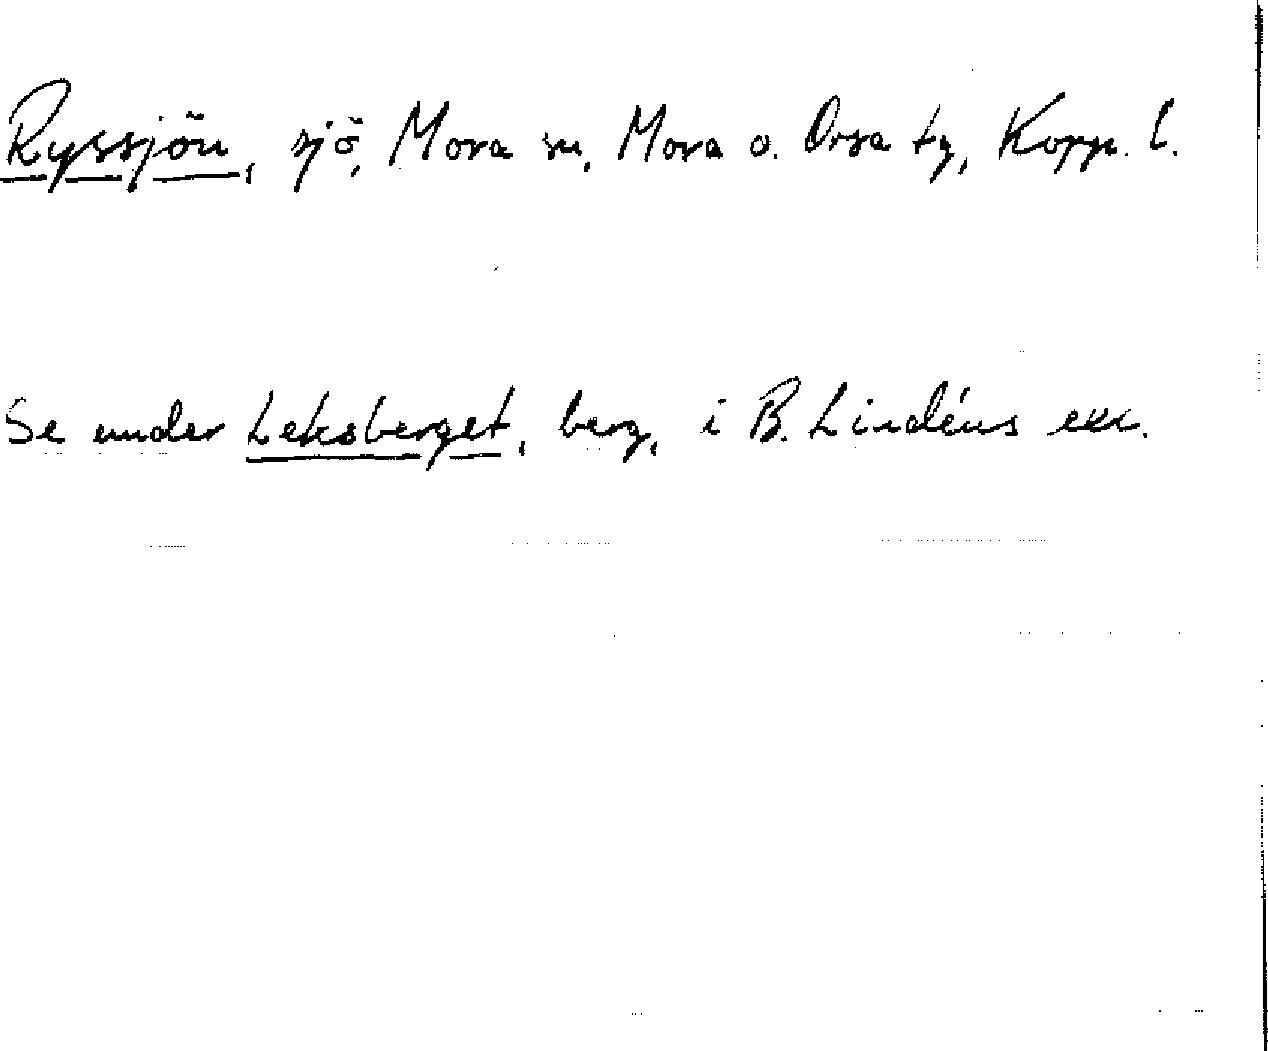 Ryssjön, sjö, Mora sn, Mora o. Orsa tg, Kopp. l.
Se under Leksberget, berg, i B. Lindéns exc.